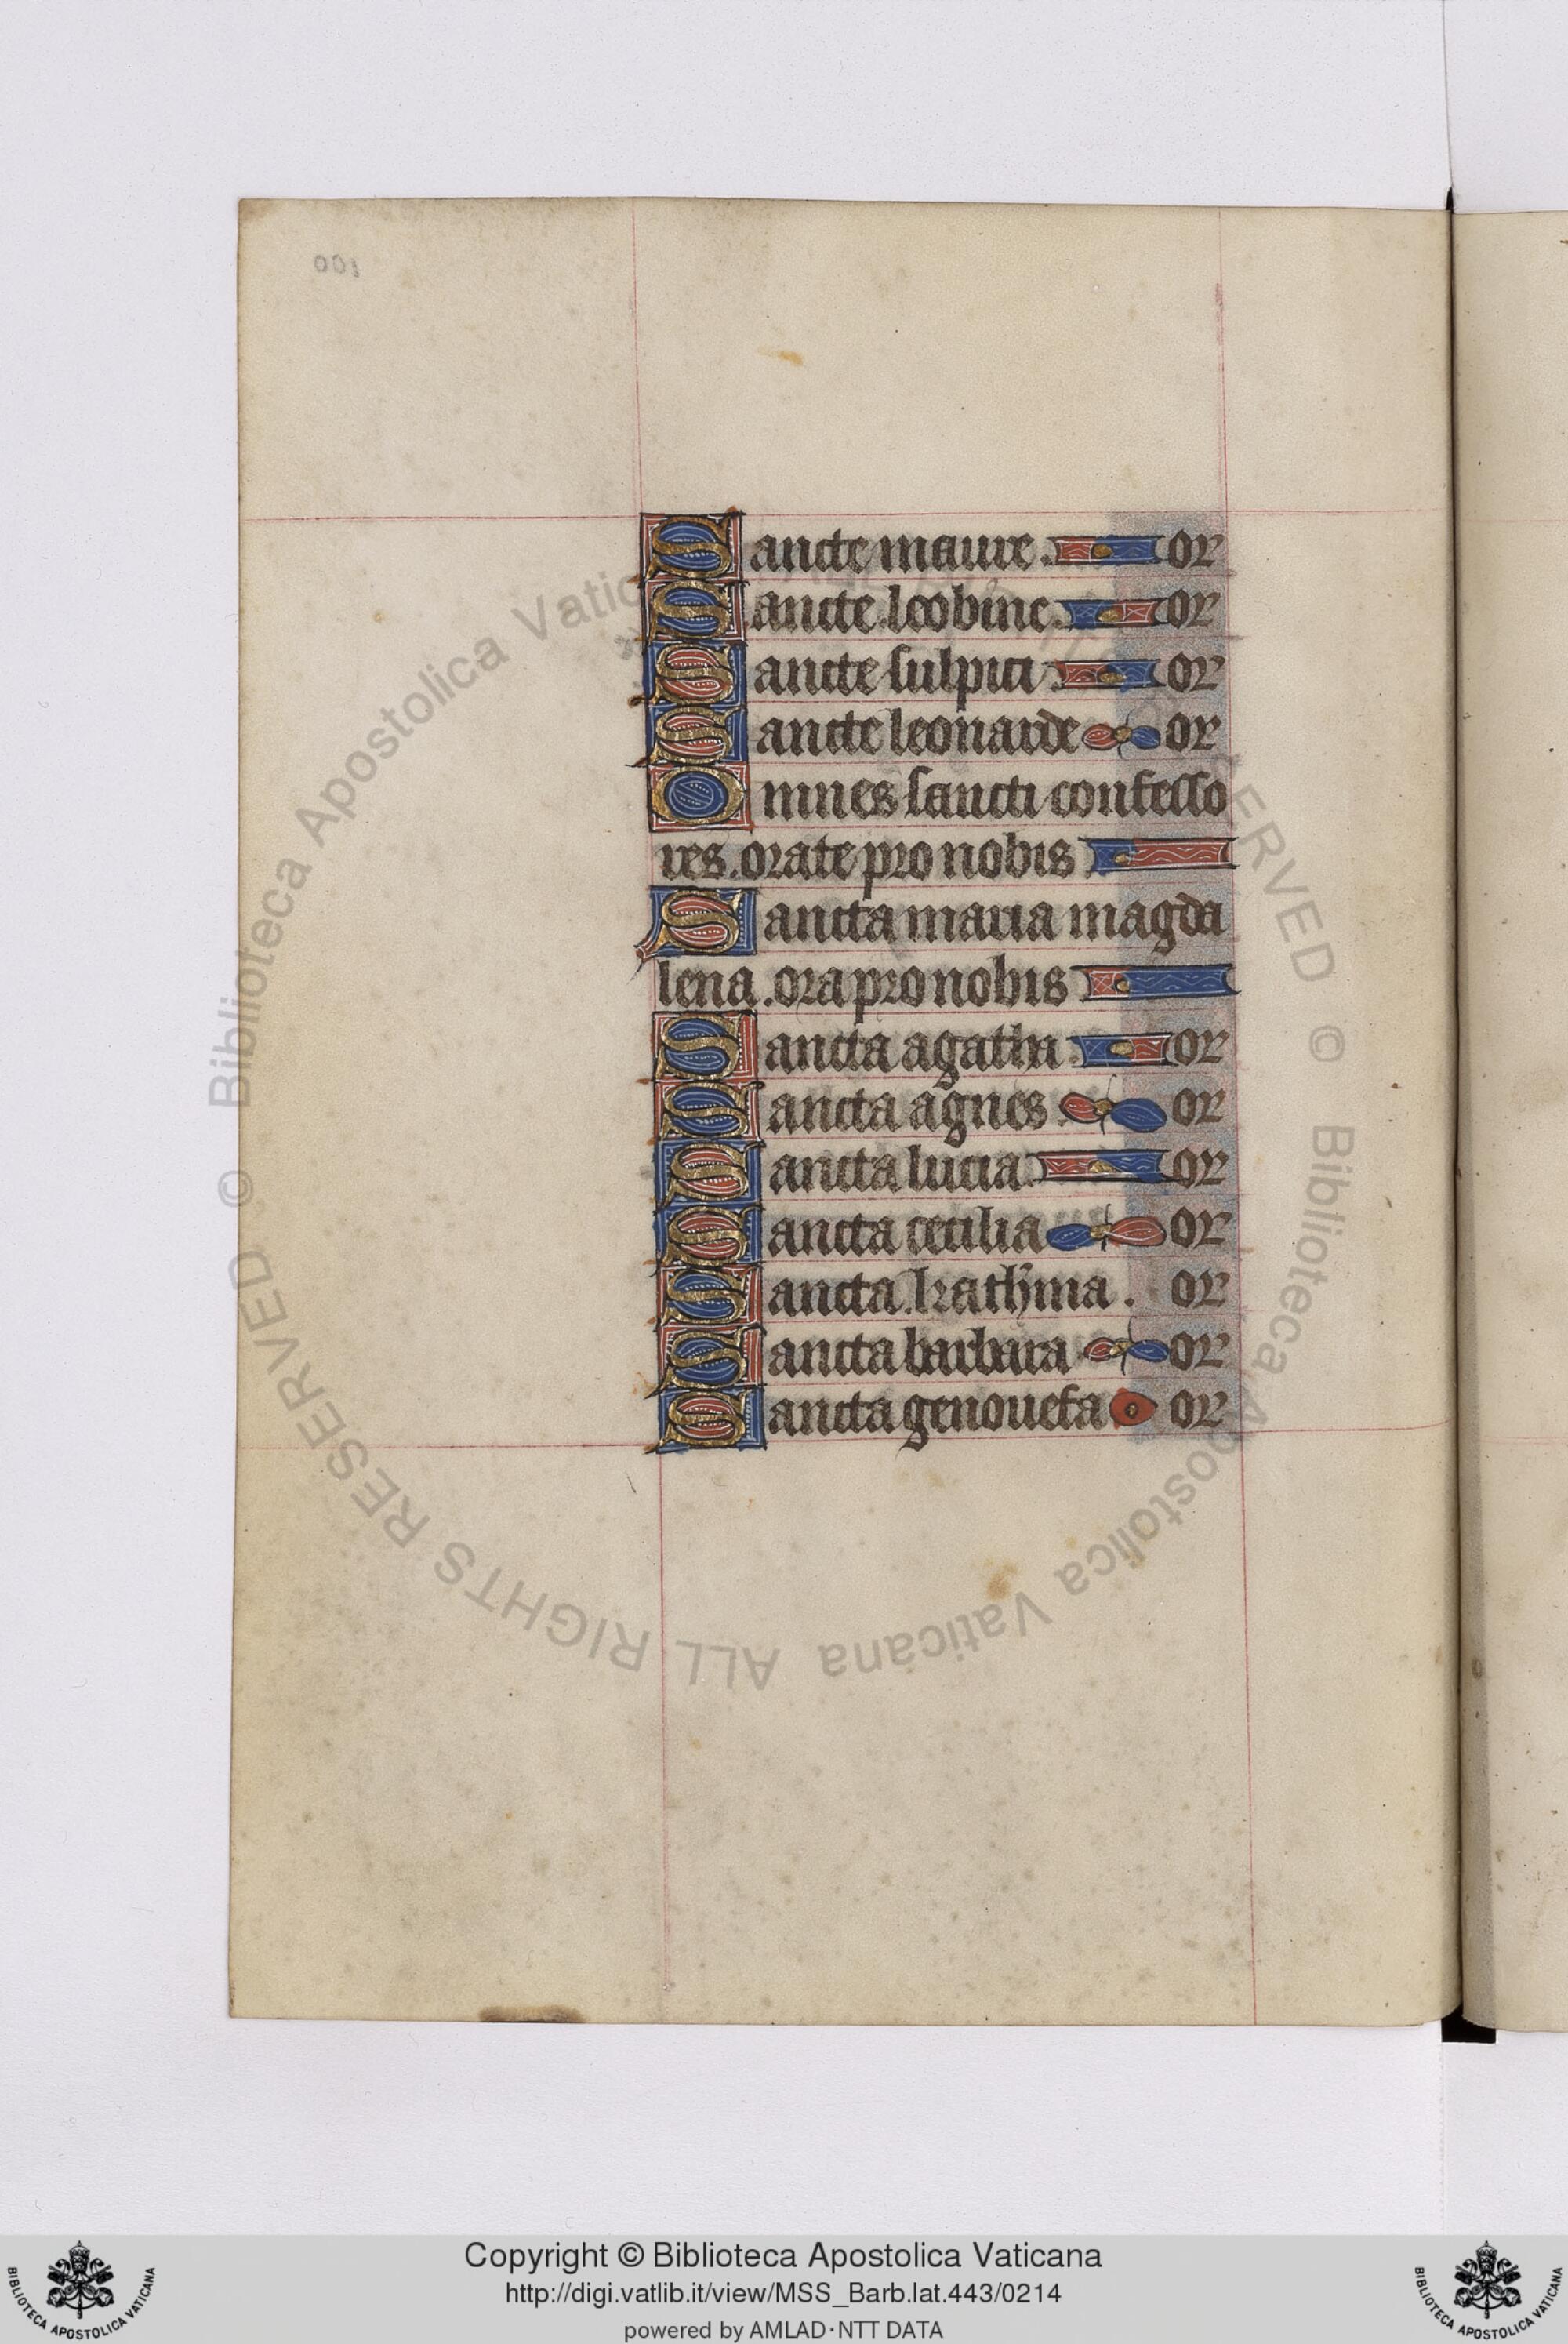 Sancte maure. or
Sancte.leobine. or
Sancte sulpici or
Sancte leonarde or
Omnes sancti confesso
res.orate pro nobis
Sancta maria magda
lena.ora pro nobis
Sancta agatha or
Sancta agnes. or
Sancta lucia or
Sancta cecilia or
Sancta.kath'ina. or
Sancta barbara or
Sancta genouefa or
© Biblioteca Apostolica Vaticana ALL RIGHTS RESERVED © Biblioteca Apostolica Vatic
ERVED
Copyright © Biblioteca Apostolica Vaticana
http://digi.vatlib.it/view/MSS_Barb.lat.443/0214
powered by AMLAD·NTT DATA
BIBLIOTECA APOSTOLICA VATICANA
BIBLIOTECA APOSTOLICA VATICANA